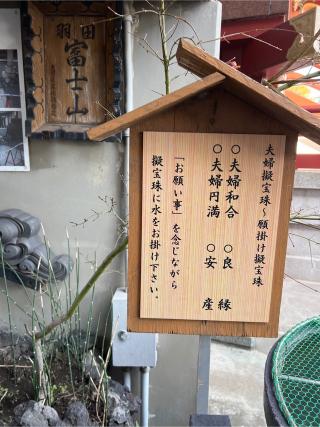 羽田
富士山
夫婦擬宝珠~願掛け擬宝珠
○夫婦和合　○良縁
○夫婦円満　○安産
「お願い事」を念じながら
擬宝珠に水をお掛け下さい。